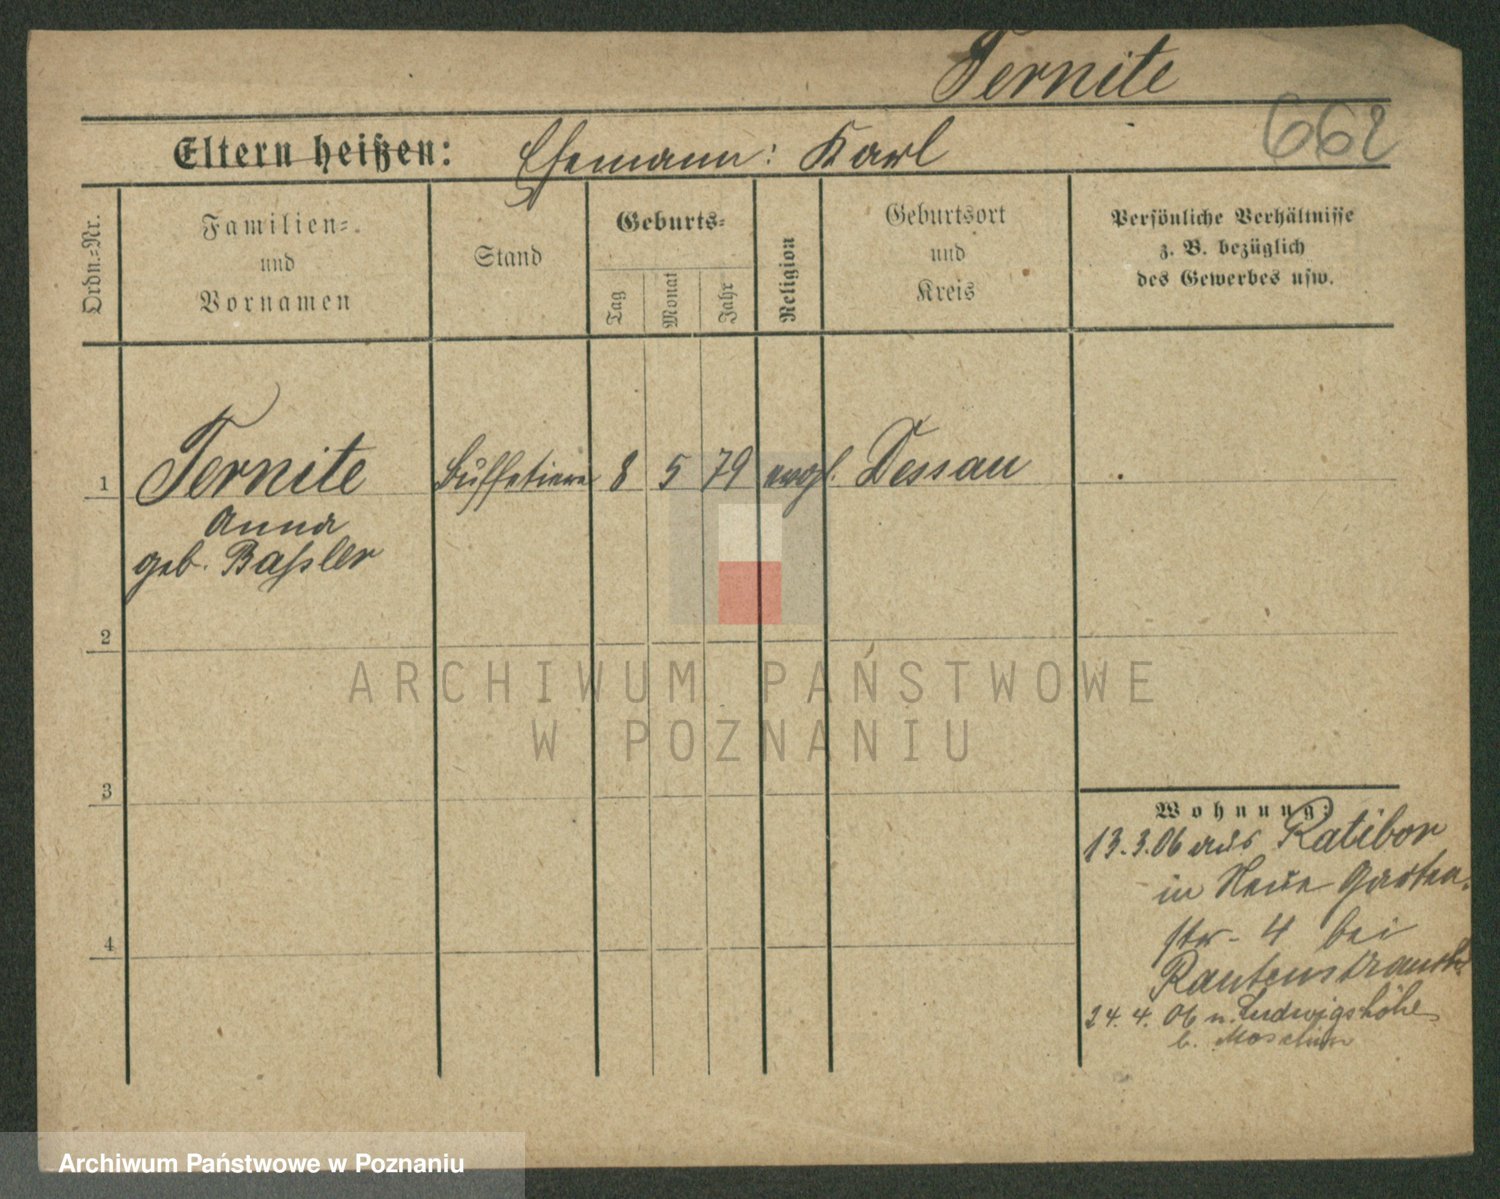 Ternite
662
Eltern heißen: Ehemann: Karl
Ordn.-Nr.
Familien-
und
Vornamen
Stand
Geburts-
Tag
Monat
Jahr
Religion
Geburtsort
und
Kreis
Persönliche Verhältnisse
z. B. bezüglich
des Gewerbes usw.
1 Ternite Buffetiere 8 5 79 evgl. Dessau
Anna
geb. Baßler
2
3
4
Wohnung:
13.3.06 aus Ratibor
in Neue Garten-
str. 4 bei
Rautenstrauch
24.4.06 n. Ludwigshöhe
b. Moschin
ARCHIWUM PAŃSTWOWE
W POZNANIU
Archiwum Państwowe w Poznaniu